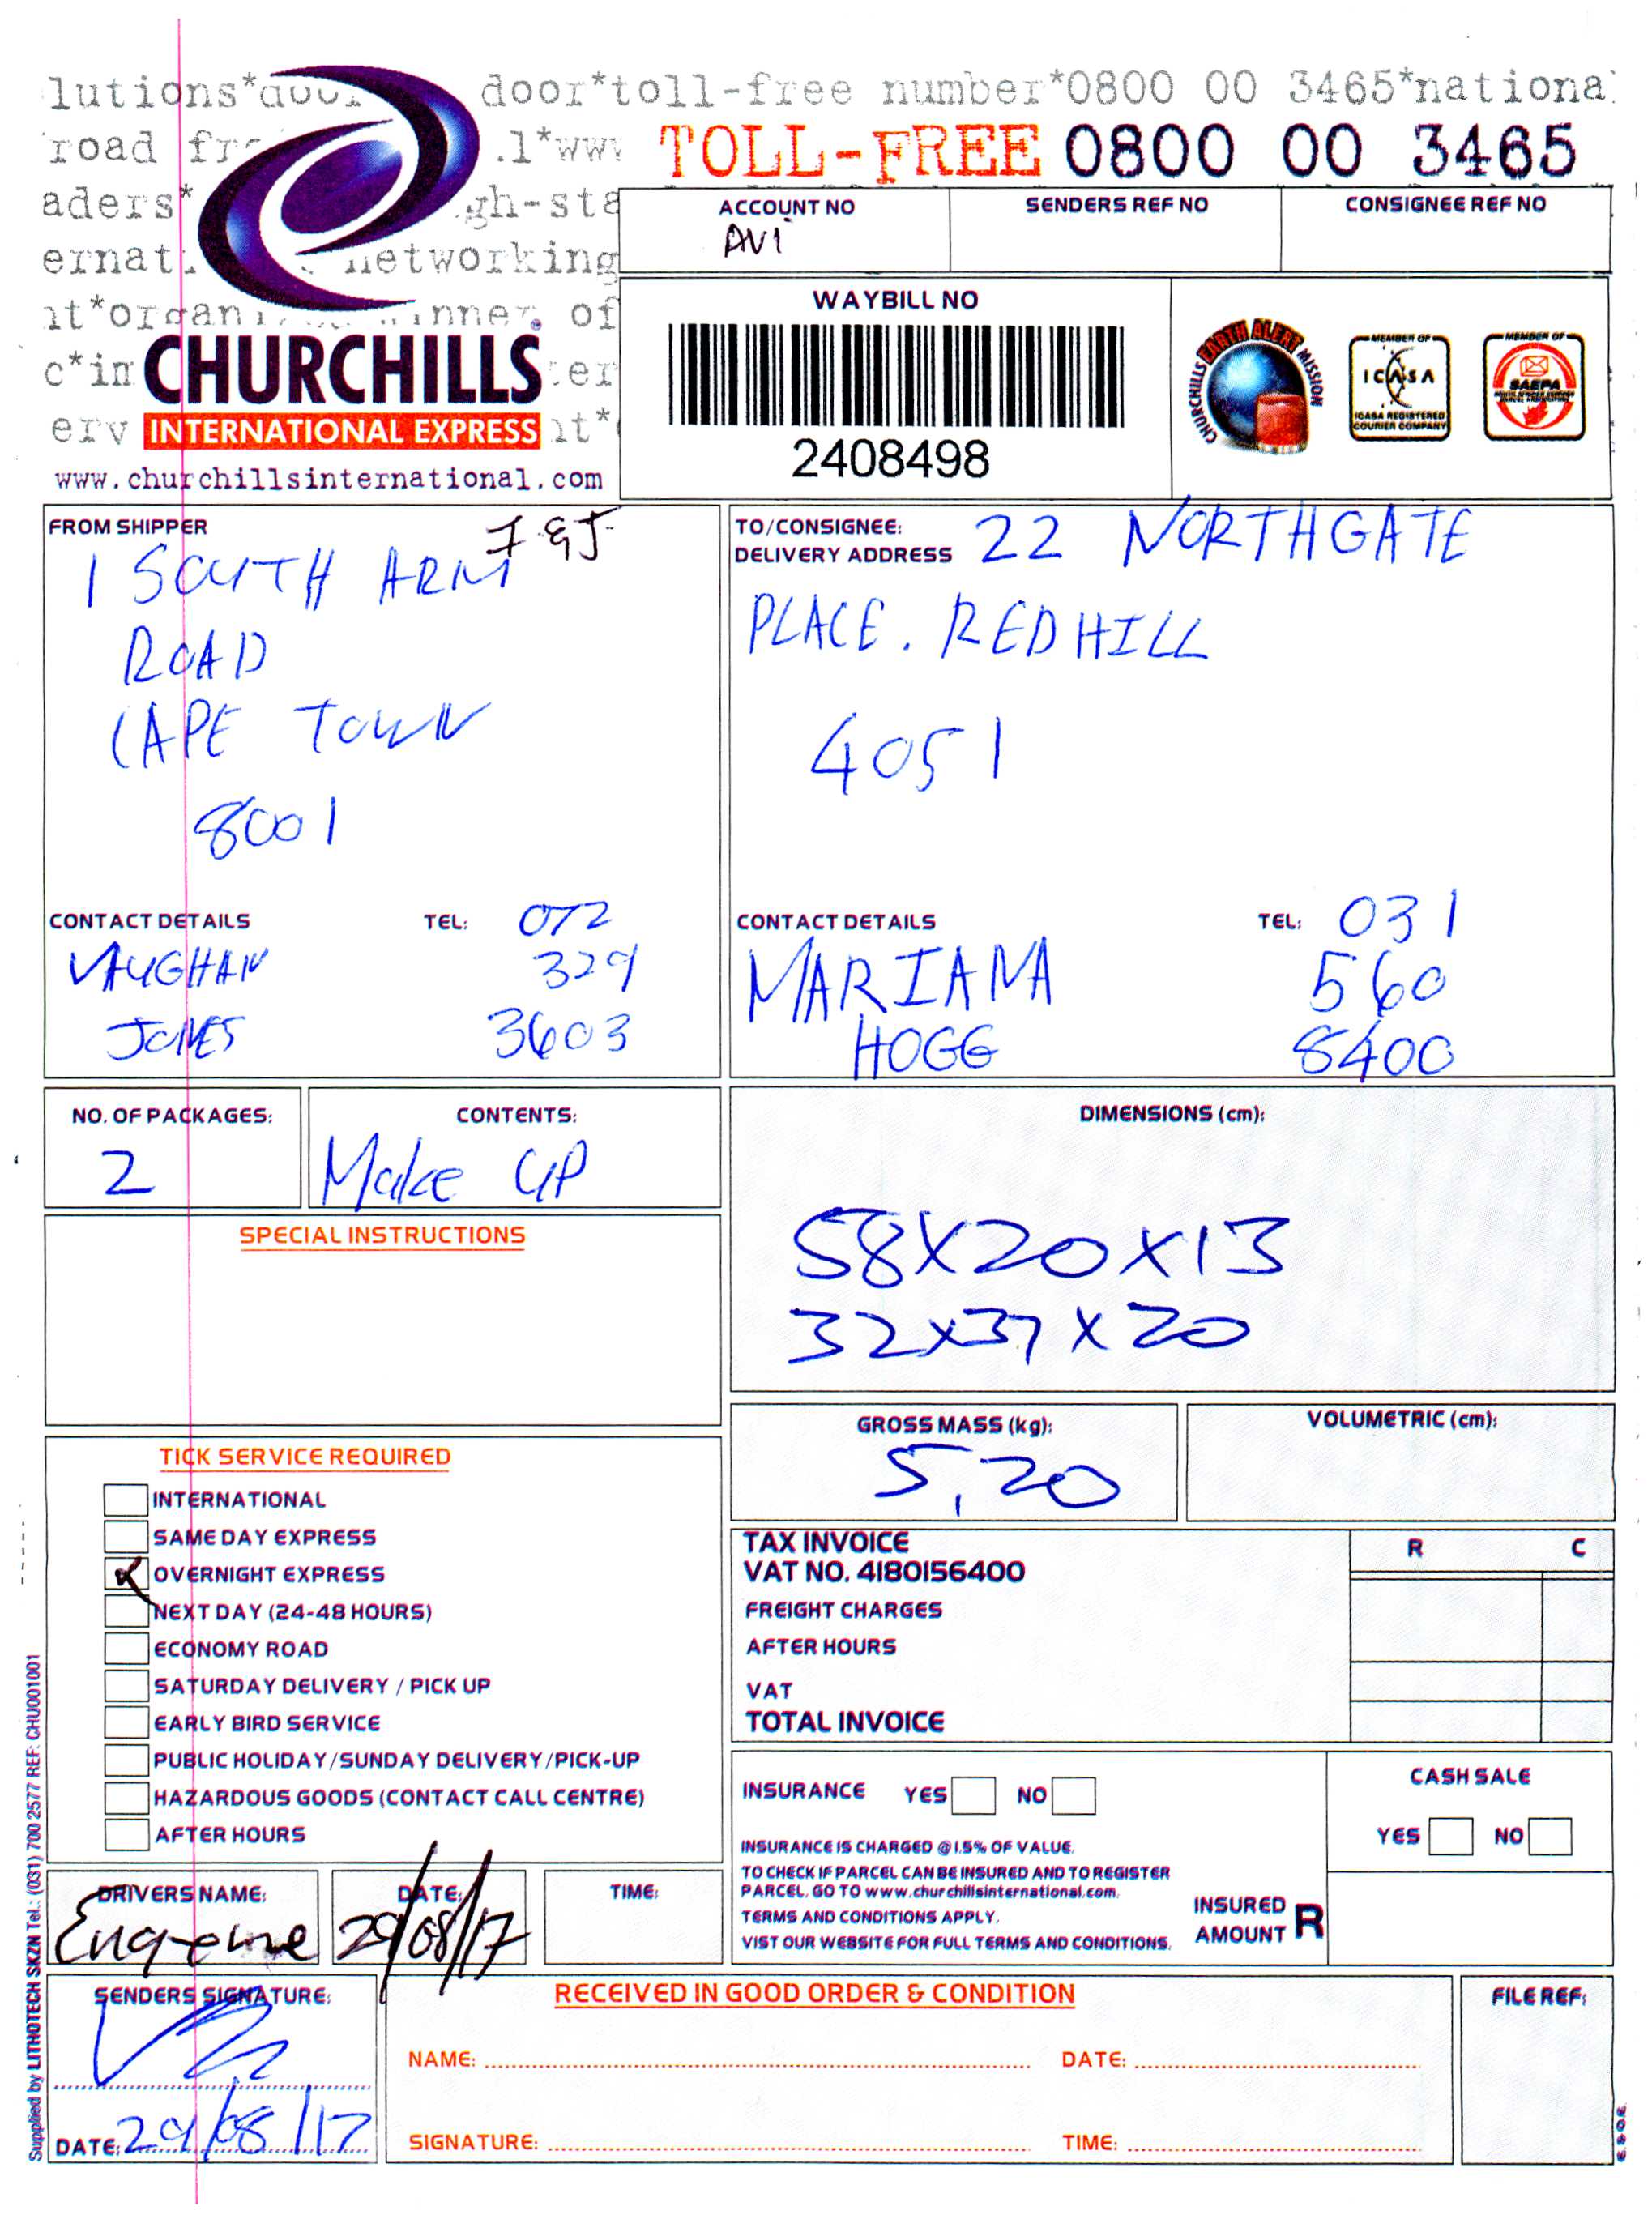 lutions*door door*toll-free number*0800 00 3465*national
road fr .l*www TOLL-FREE 0800 00 3465
aders* gh-sta
ernat networking
nt*organi winner of
c*in ter
erv nt*
CHURCHILLS
INTERNATIONAL EXPRESS
www.churchillsinternational.com
ACCOUNT NO SENDERS REF NO CONSIGNEE REF NO
AVI
WAYBILL NO
2408498
CHURCHILLS EARTH ALERT MISSION
MEMBER OF
ICASA
ICASA REGISTERED
COURIER COMPANY
MEMBER OF
SAEPA
FROM SHIPPER
F&J
1 SOUTH ARM
ROAD
CAPE TOWN
8001
CONTACT DETAILS TEL: 072
VAUGHAN 329
JONES 3603
TO/CONSIGNEE:
DELIVERY ADDRESS 22 NORTHGATE
PLACE. REDHILL
4051
CONTACT DETAILS TEL: 031
MARIANA 560
HOGG 8400
NO. OF PACKAGES: CONTENTS:
2 Make UP
DIMENSIONS (cm):
58X20X13
32X37X20
SPECIAL INSTRUCTIONS
GROSS MASS (kg): VOLUMETRIC (cm):
5,20
TICK SERVICE REQUIRED
INTERNATIONAL
SAME DAY EXPRESS
OVERNIGHT EXPRESS
NEXT DAY (24-48 HOURS)
ECONOMY ROAD
SATURDAY DELIVERY / PICK UP
EARLY BIRD SERVICE
PUBLIC HOLIDAY/SUNDAY DELIVERY/PICK-UP
HAZARDOUS GOODS (CONTACT CALL CENTRE)
AFTER HOURS
TAX INVOICE R C
VAT NO. 4180156400
FREIGHT CHARGES
AFTER HOURS
VAT
TOTAL INVOICE
INSURANCE YES NO
INSURANCE IS CHARGED @ 1.5% OF VALUE.
TO CHECK IF PARCEL CAN BE INSURED AND TO REGISTER
PARCEL, GO TO www.churchillsinternational.com.
TERMS AND CONDITIONS APPLY.
VIST OUR WEBSITE FOR FULL TERMS AND CONDITIONS.
INSURED
AMOUNT R
CASH SALE
YES NO
DRIVERS NAME: DATE: TIME:
29/08/17
SENDERS SIGNATURE:
DATE: 29/08/17
RECEIVED IN GOOD ORDER & CONDITION
NAME: DATE:
SIGNATURE: TIME:
FILE REF:
Supplied by LITHOTECH SKZN Tel.: (031) 700 2577 REF: CHU001001
E.&O.E.